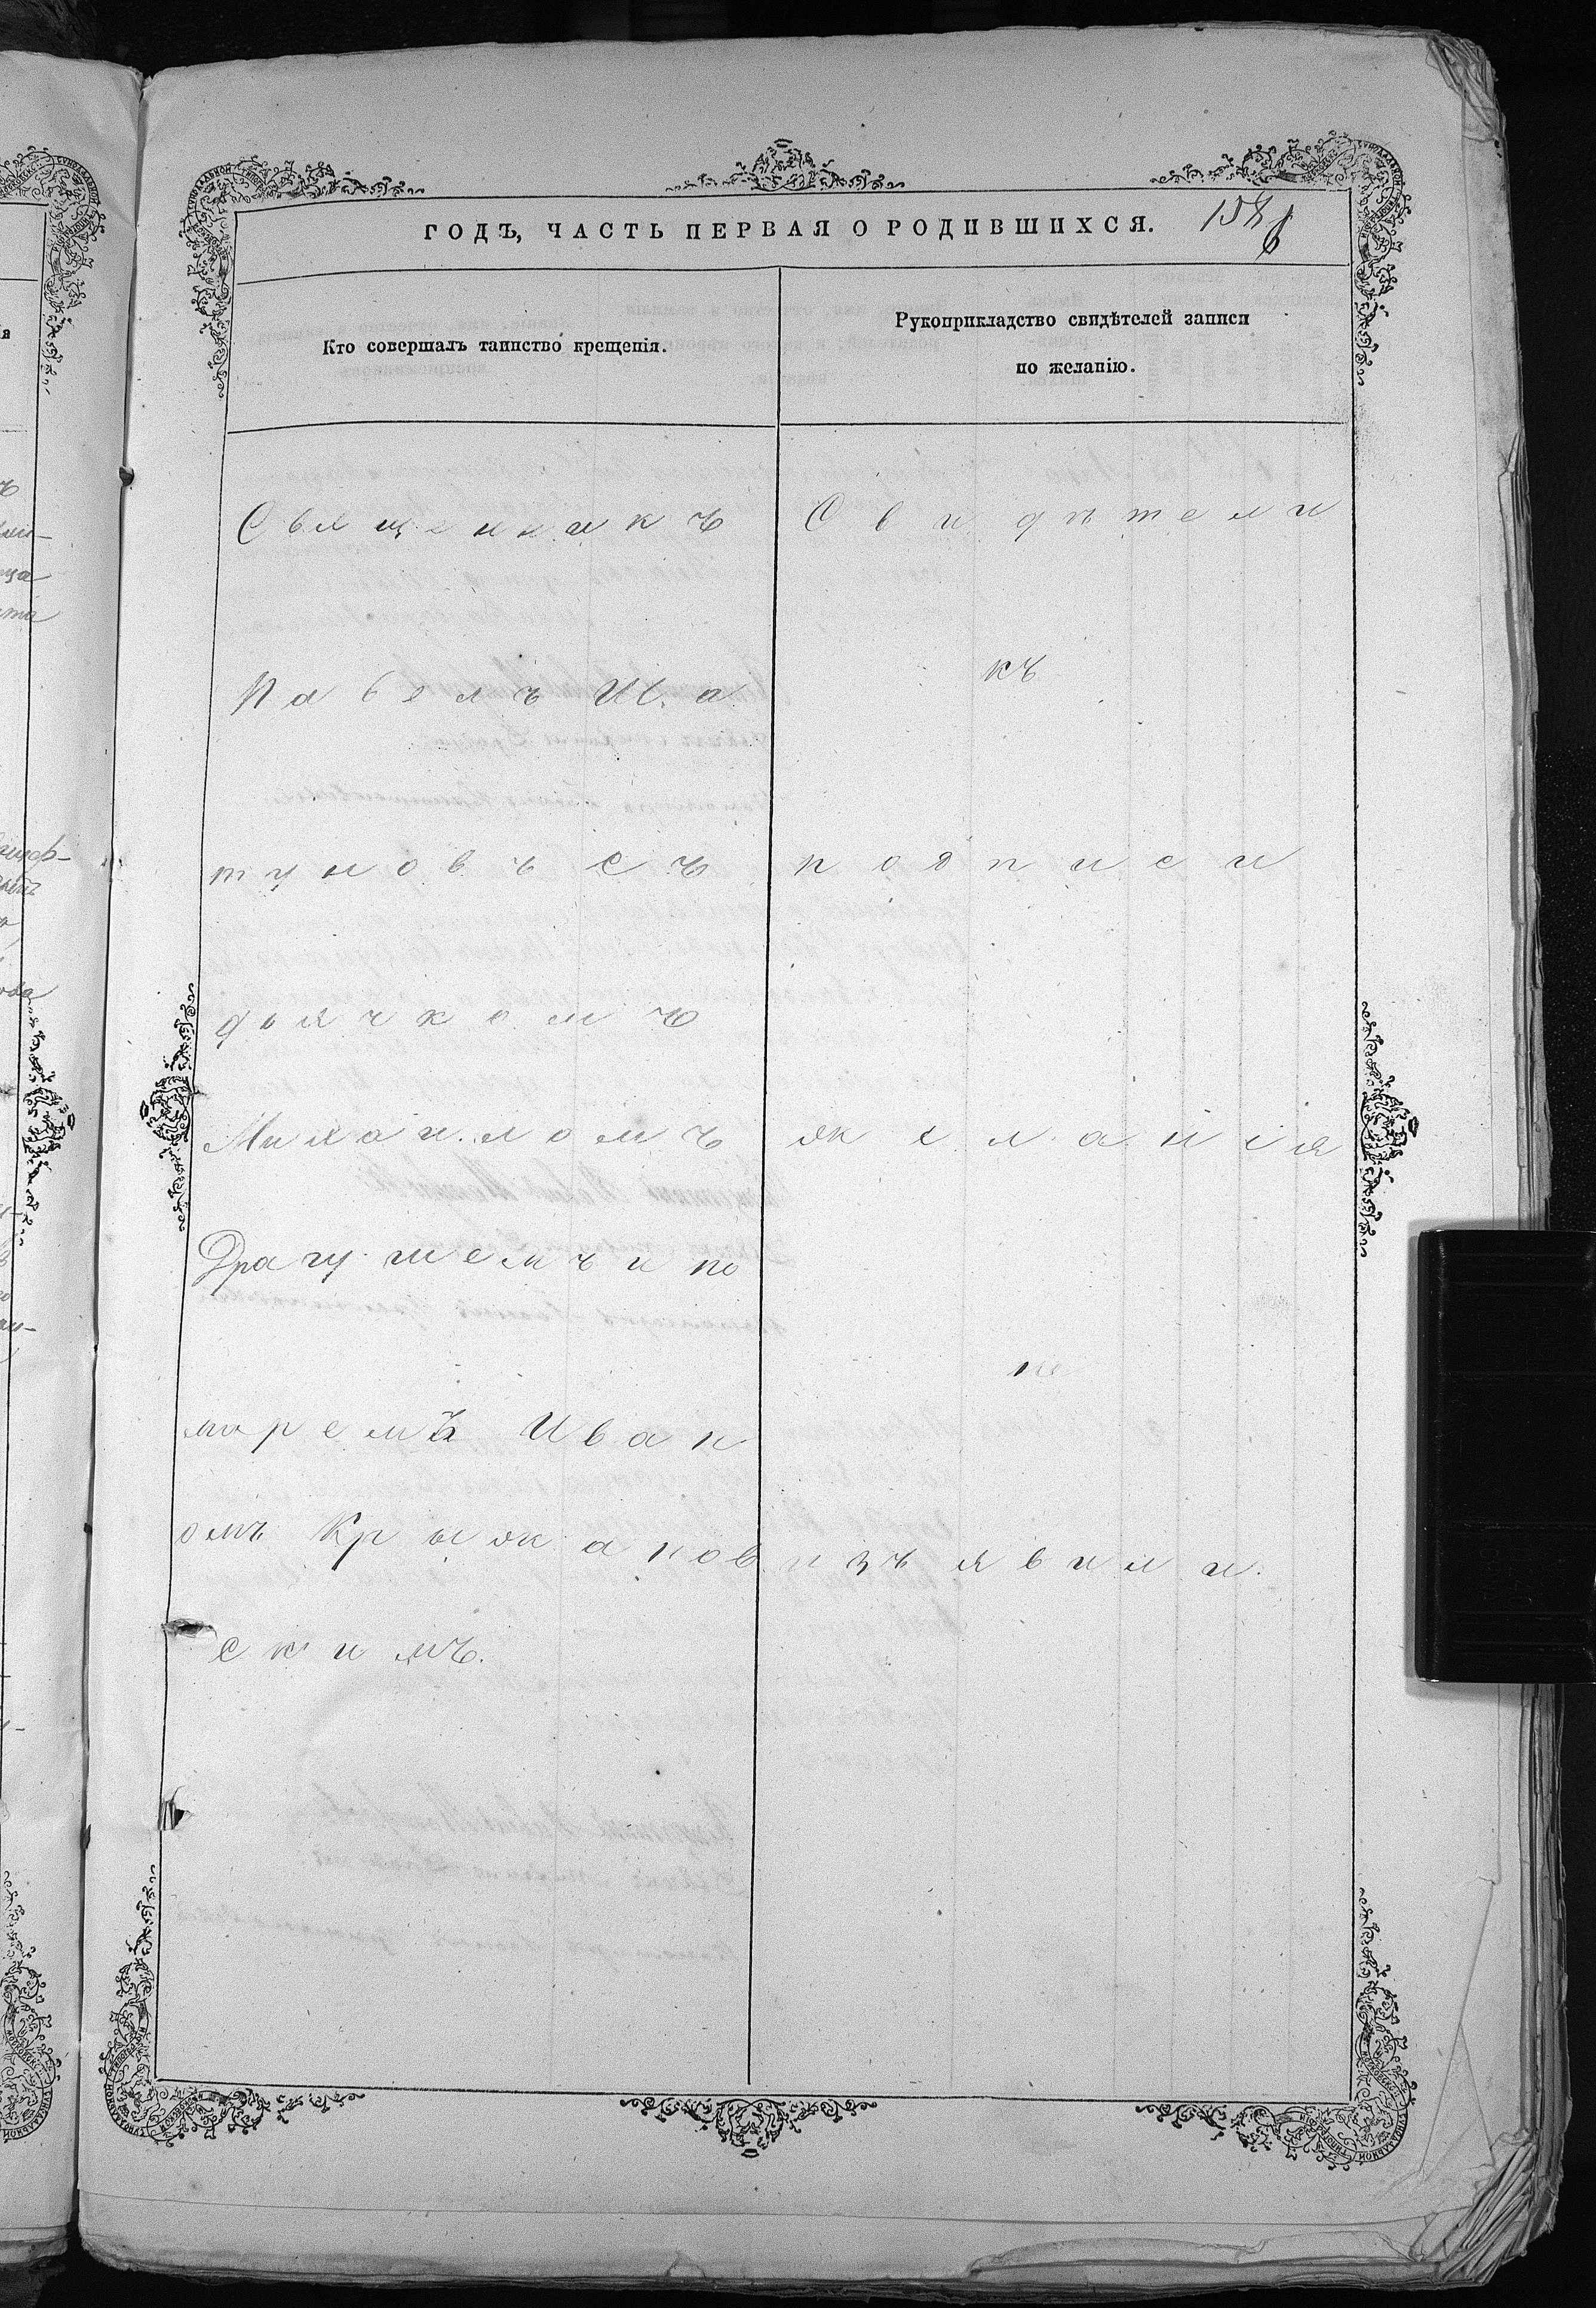 ГОДЪ, ЧАСТЬ ПЕРВАЯ О РОДИВШИХСЯ.
Кто совершалъ таинство крещенія.
Рукоприкладство свидѣтелей записи
по желанію.
Священникъ
Павелъ Ша
туновъ съ
дьячкомъ
Михаиломъ
Драгушемъ и по
маремъ Иван
омъ Крыжанов
скимъ.
Свидѣтели
къ
подписи
желанія
не
изъявили.